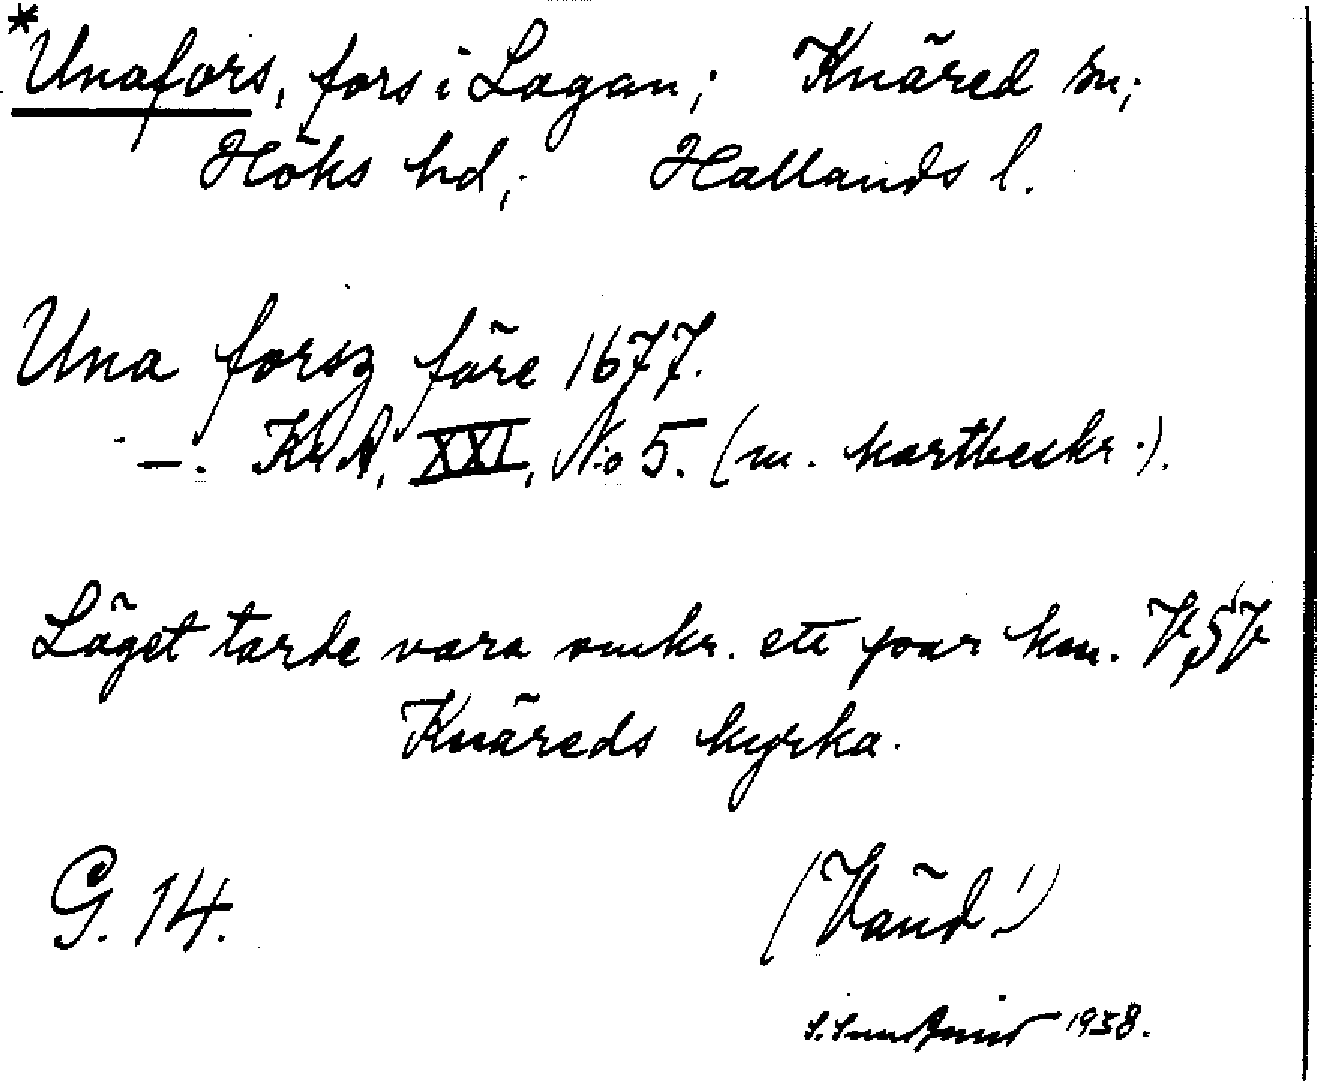 *Unafors, fors i Lagan; Knäred sn;
Höks hd; Hallands l.
Una forsz före 1677.
—. KrA, XXI, No 5. (m. kartbeskr.).
Läget torde vara omkr. ett par km. VSV
Knäreds kyrka.
G. 14.
(Vänd!)
1938.